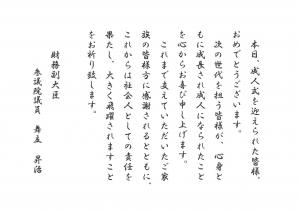 本日、成人式を迎えられた皆様、
おめでとうございます。
次の世代を担う皆様が、心身と
もに成長され成人になられたこと
を心からお喜び申し上げます。
これまで支えていただいたご家
族の皆様方に感謝されるとともに、
これからは社会人としての責任を
果たし、大きく飛躍されますこと
をお祈り致します。
財務副大臣
参議院議員 舞立 昇治